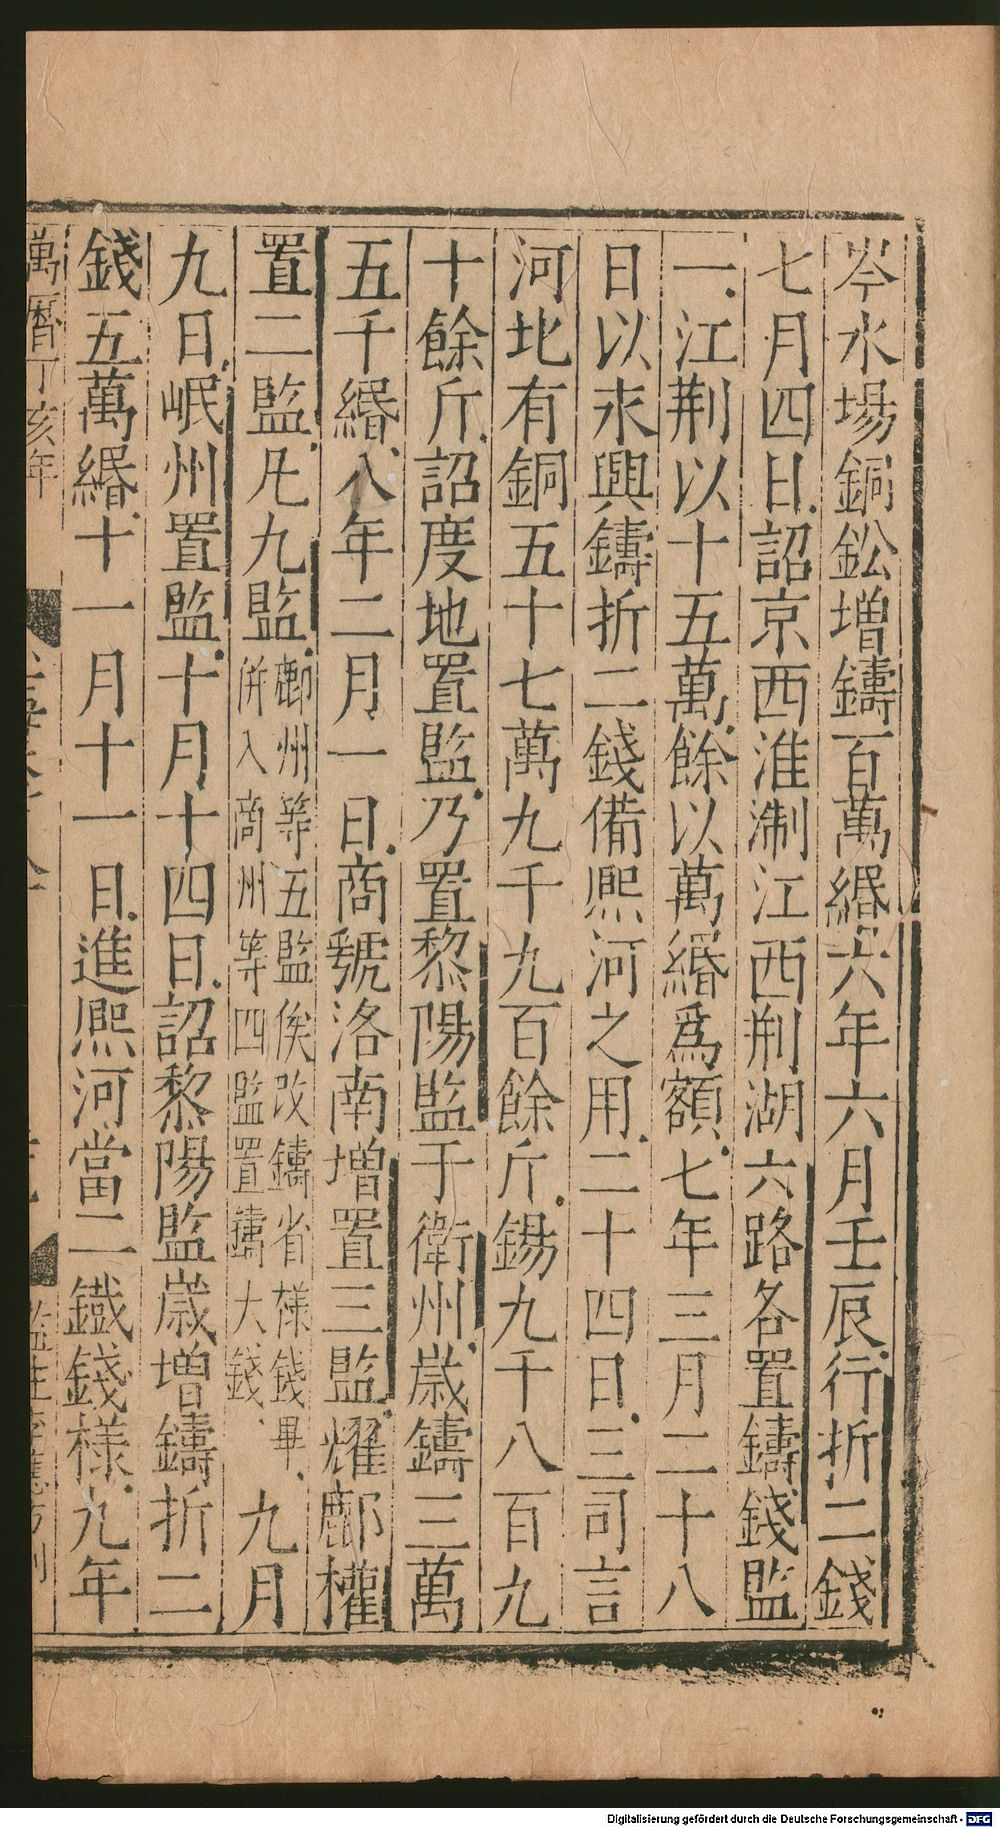 岑水場銅鈆增鑄百萬緡六年六月壬辰行折二錢
七月四日詔京西淮淛江西荆湖六路各置鑄錢監
一江荆以十五萬餘以萬緡爲額七年三月二十八
日以永興鑄折二錢備熈河之用二十四日三司言
河北有銅五十七萬九千九百餘斤錫九千八百九
十餘斤詔度地置監乃置黎陽監于衛州歲鑄三萬
五千緡八年二月一日商虢洛南增置三監耀鄜權
置二監凡九監鄜州等五監俟改鑄省樣錢畢併入商州等四監置鑄大錢九月
九日岷州置監十月十四日詔黎陽監歲增鑄折二
錢五萬緡十一月十一日進熈河當二鐵錢樣九年
萬曆丁亥年
監生
刋
Digitalisierung gefördert durch die Deutsche Forschungsgemeinschaft - DFG